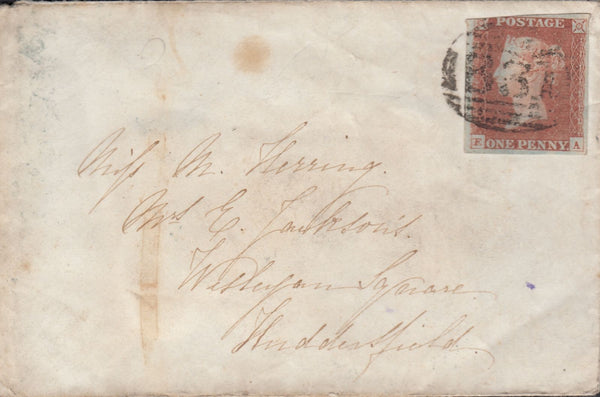 POSTAGE
ONE PENNY
E A
Miss M. Herring.
Mrs E. Jackson's.
Wesleyan Square.
Huddersfield.